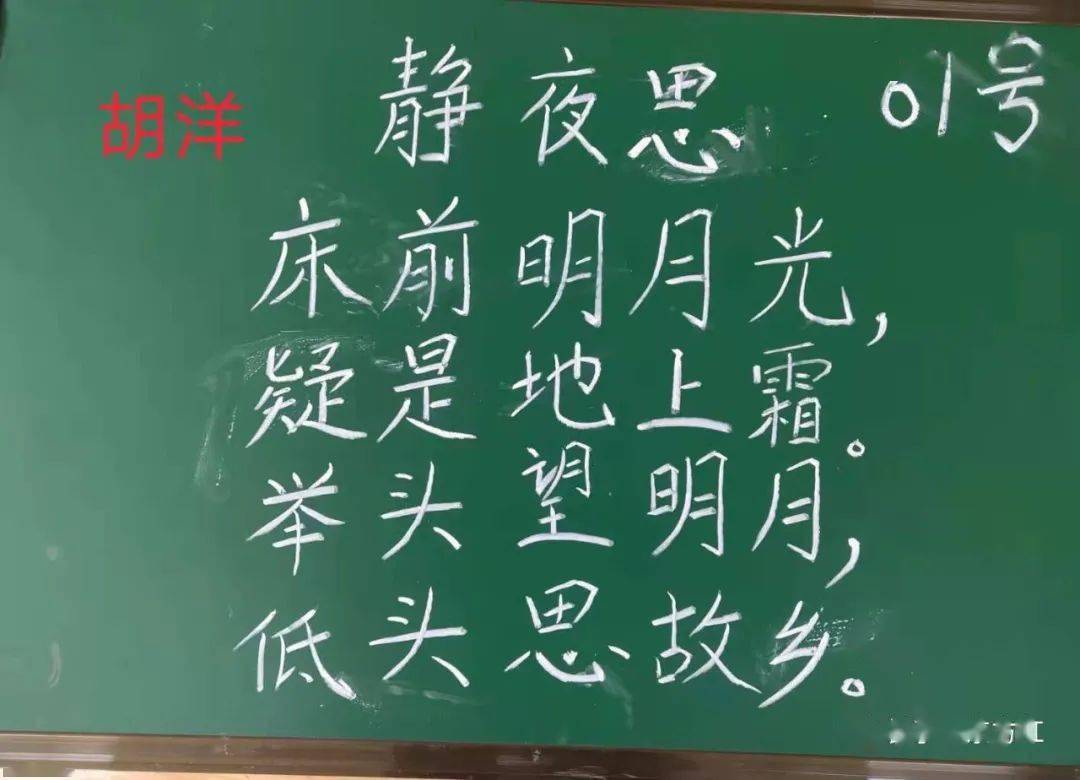 胡洋 静夜思 01号
床前明月光，
疑是地上霜。
举头望明月，
低头思故乡。